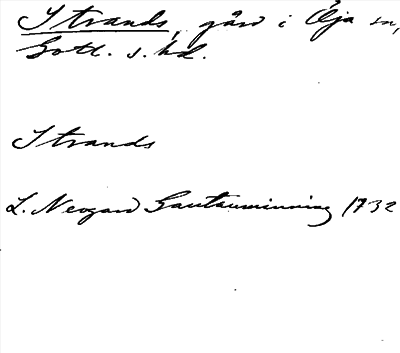 Strands, gård i Öja sn,
Gotl. s. hd.
Strands
L. Neogard Gautauminning 1732